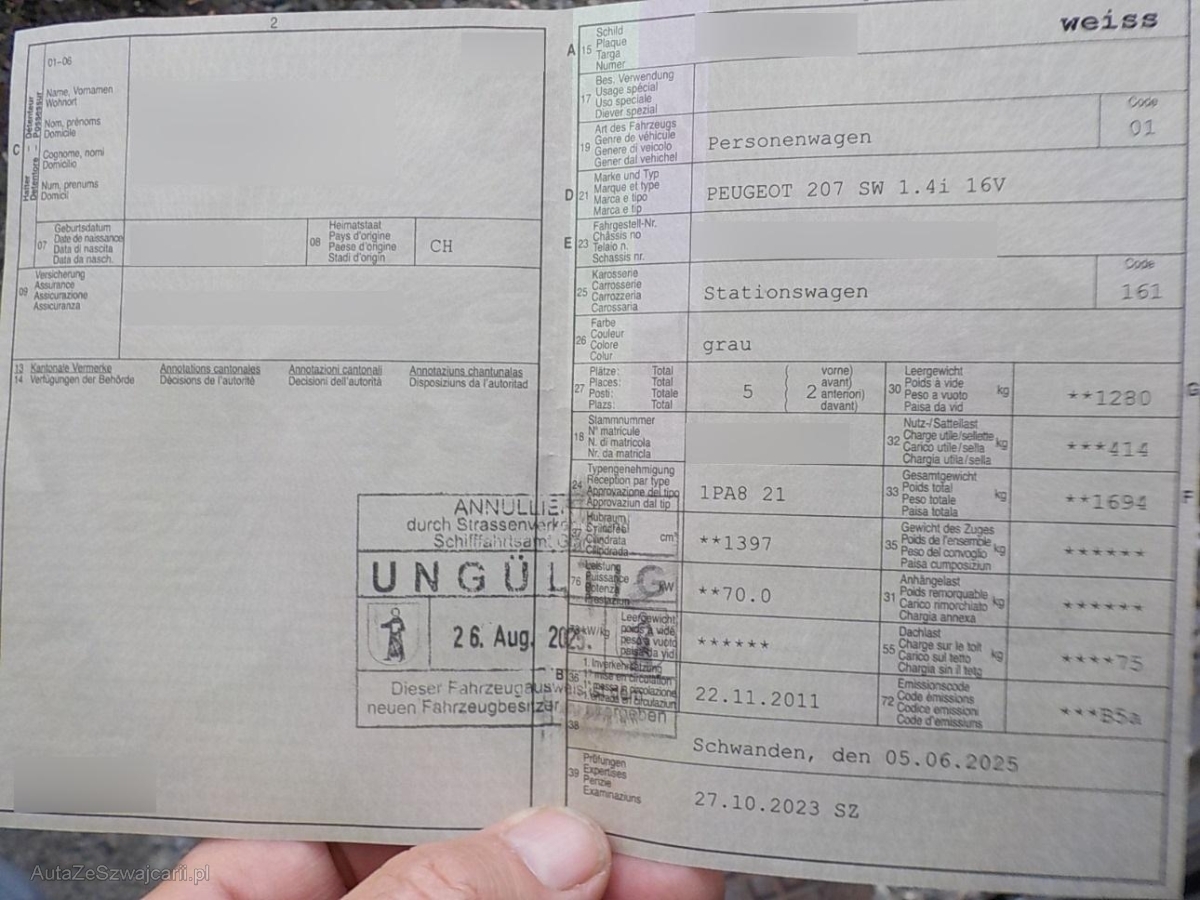 2
01–06
Name, Vornamen
Wohnort
Nom, prénoms
Domicile
Cognome, nomi
Domicilio
Num, prenums
Domicil
C
Halter – Détenteur
Detentore – Possessur
07
Geburtsdatum
Date de naissance
Data di nascita
Data da nasch.
08
Heimatstaat
Pays d'origine
Paese d'origine
Stadi d'origin
CH
09
Versicherung
Assurance
Assicurazione
Assicuranza
13 Kantonale Vermerke Annotations cantonales Annotazioni cantonali Annotaziuns chantunalas
14 Verfügungen der Behörde Décisions de l'autorité Decisioni dell'autorità Disposiziuns da l'autoritad
ANNULLIE
durch Strassenverke
Schifffahrtsamt
UNGÜL IG
26. Aug. 2025.
Dieser Fahrzeugausweis
neuen Fahrzeugbesitzer
weiss
A 15
Schild
Plaque
Targa
Numer
17
Bes. Verwendung
Usage spécial
Uso speciale
Diever spezial
19
Art des Fahrzeugs
Genre de véhicule
Genere di veicolo
Gener dal vehichel
Personenwagen
Code
01
D 21
Marke und Typ
Marque et type
Marca e tipo
Marca e tip
PEUGEOT 207 SW 1.4i 16V
E 23
Fahrgestell-Nr.
Châssis no
Telaio n.
Schassis nr.
25
Karosserie
Carrosserie
Carrozzeria
Carossaria
Stationswagen
Code
161
26
Farbe
Couleur
Colore
Colur
grau
27
Plätze: Total
Places: Total
Posti: Totale
Plazs: Total
5
2
vorne)
avant)
anteriori)
davant)
30
Leergewicht
Poids à vide
Peso a vuoto
Paisa da vid
kg
**1280
G
18
Stammnummer
N° matricule
N. di matricola
Nr. da matricla
32
Nutz-/Sattellast
Charge utile/sellette
Carico utile/sella
Chargia utila/sella
kg
***414
24
Typengenehmigung
Réception par type
Approvazione del tipo
Approvaziun dal tip
1PA8 21
33
Gesamtgewicht
Poids total
Peso totale
Paisa totala
kg
**1694
F
37
Hubraum
Cylindrée
Cilindrata
Cilindrada
cm³
**1397
35
Gewicht des Zuges
Poids de l'ensemble
Peso del convoglio
Paisa cumposiziun
kg
******
76
Leistung
Puissance
Potenza
Prestaziun
kW
**70.0
31
Anhängelast
Poids remorquable
Carico rimorchiato
Chargia annexa
kg
******
kW/kg
Leergewicht
poids à vide
peso a vuoto
paisa da vid
******
55
Dachlast
Charge sur le toit
Carico sul tetto
Chargia sin il tetg
kg
****75
B 36
1. Inverkehrsetzung
1re mise en circulation
22.11.2011
72
Emissionscode
Code émissions
Codice emissioni
Code d'emissiuns
***B5a
38
Schwanden, den 05.06.2025
39
Prüfungen
Expertises
Perizie
Examinaziuns
27.10.2023 SZ
AutaZeSzwajcarii.pl